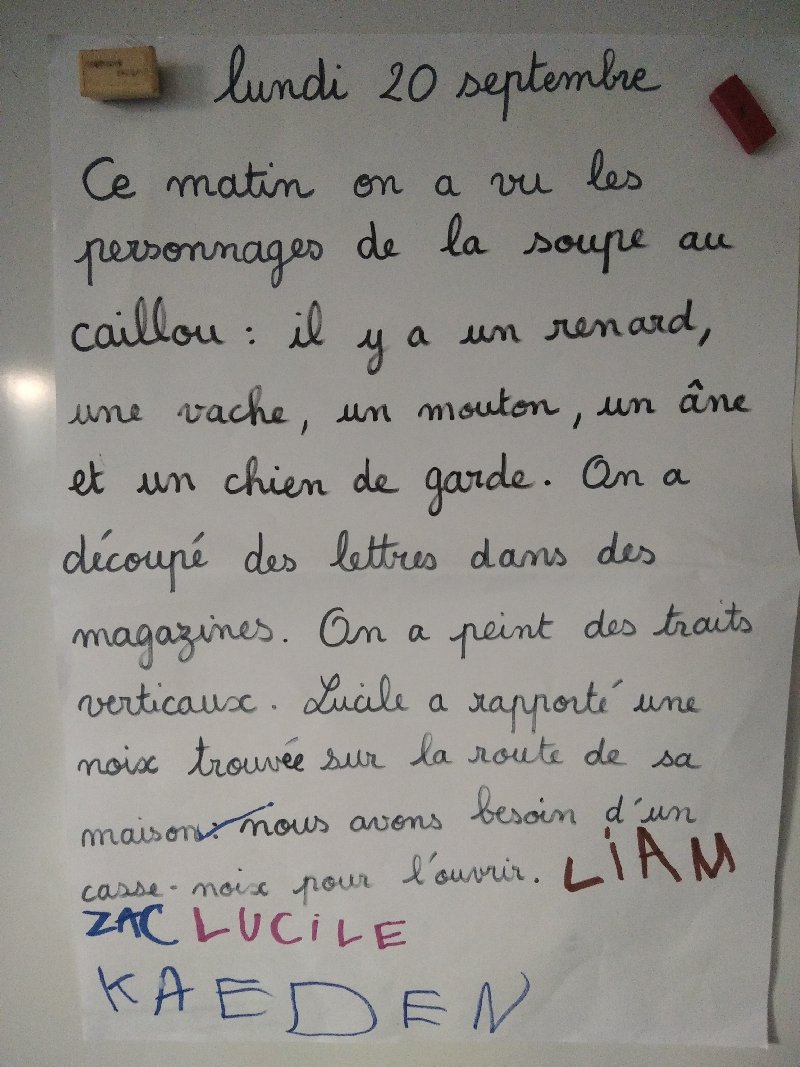 lundi 20 septembre
Ce matin on a vu les
personnages de la soupe au
caillou : il y a un renard,
une vache, un mouton, un âne
et un chien de garde. On a
découpé des lettres dans des
magazines. On a peint des traits
verticaux. Lucile a rapporté une
noix trouvée sur la route de sa
maison : nous avons besoin d'un
casse-noix pour l'ouvrir. LiAM
ZAC LUCiLE
KAEDEN